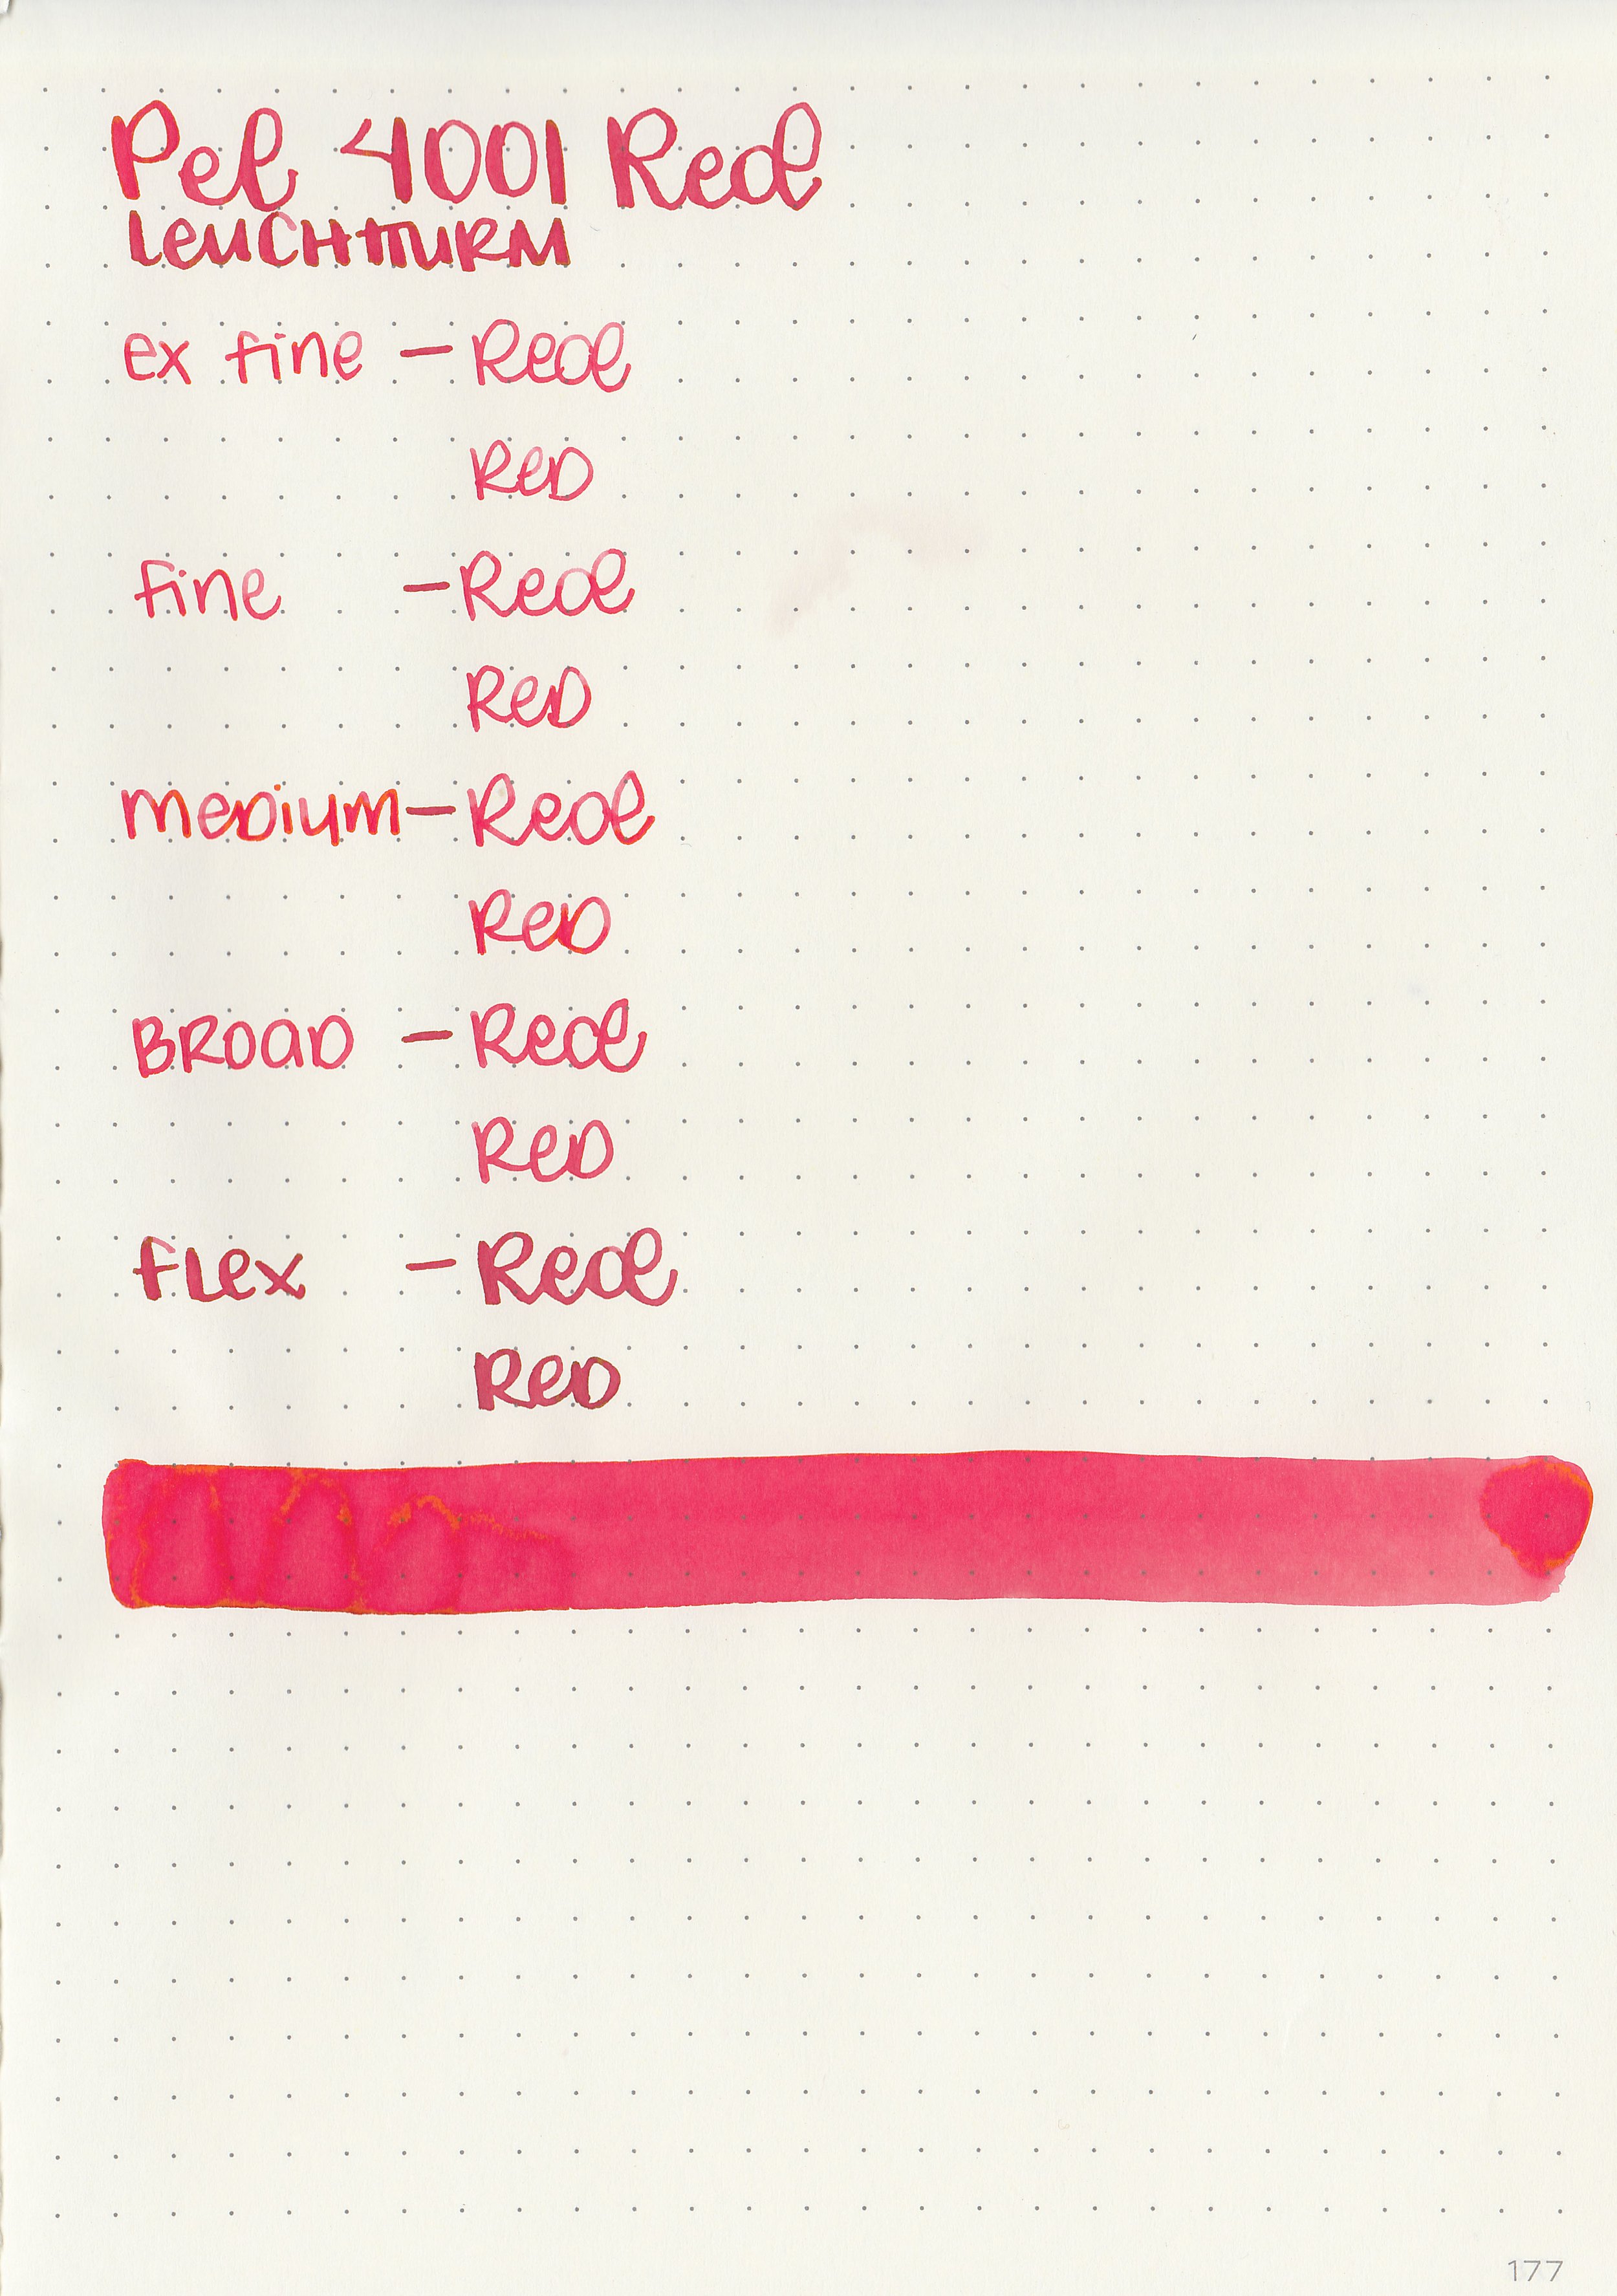 Pel 4001 Red
LEUCHTTURM
ex fine - Red
RED
fine - Red
RED
meDium - Red
RED
BROAD - Red
RED
fLex - Red
RED
177